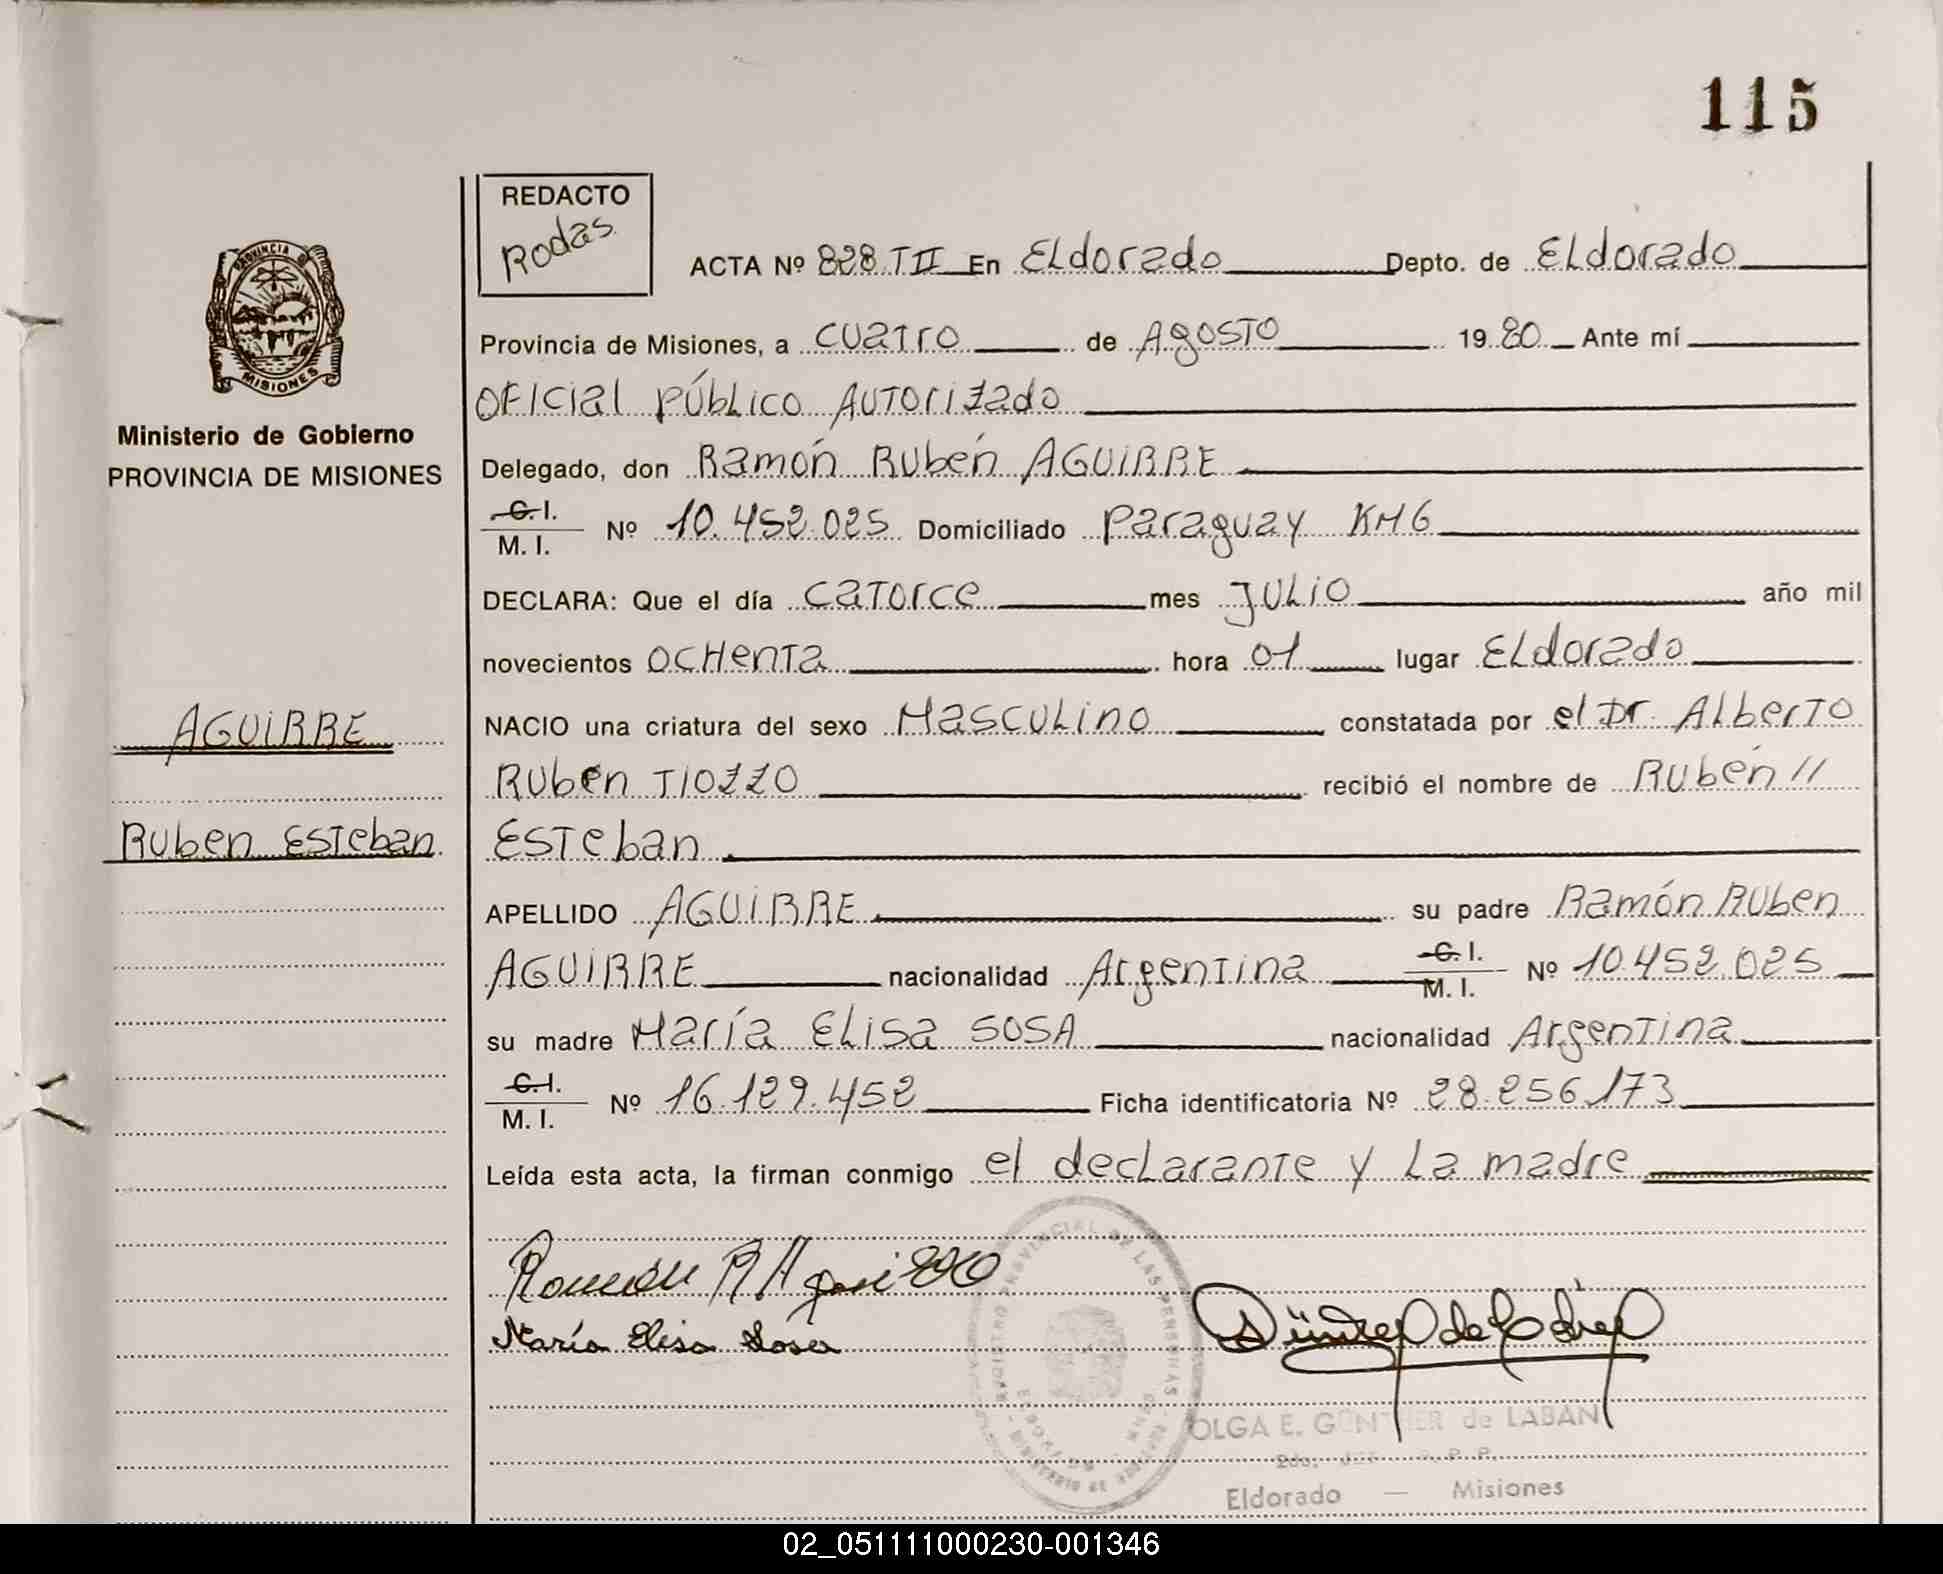 115
REDACTO
Rodas
PROVINCIA DE
MISIONES
Ministerio de Gobierno
PROVINCIA DE MISIONES
AGUIRRE
Ruben Esteban
ACTA Nº 828 T II En Eldorado Depto. de Eldorado
Provincia de Misiones, a cuatro de Agosto 19 80 Ante mí
Oficial Público Autorizado
Delegado, don Ramón Rubén AGUIRRE
C.I.
M. I. Nº 10.452.025 Domiciliado Paraguay KM6
DECLARA: Que el día catorce mes Julio año mil
novecientos ochenta hora 01 lugar Eldorado
NACIO una criatura del sexo Masculino constatada por el Dr. Alberto
Ruben TIOZZO recibió el nombre de Rubén //
Esteban
APELLIDO AGUIRRE su padre Ramón Ruben
AGUIRRE nacionalidad Argentina C.I. M. I. Nº 10.452.025
su madre María Elisa SOSA nacionalidad Argentina
C.I.
M. I. Nº 16.129.452 Ficha identificatoria Nº 28.256.173
Leída esta acta, la firman conmigo el declarante y la madre
Ramón R Aguirre
María Elisa Sosa
REGISTRO PROVINCIAL DE LAS PERSONAS
OLGA E. GÜNTHER de LABAN
Eldorado — Misiones
02_051111000230-001346